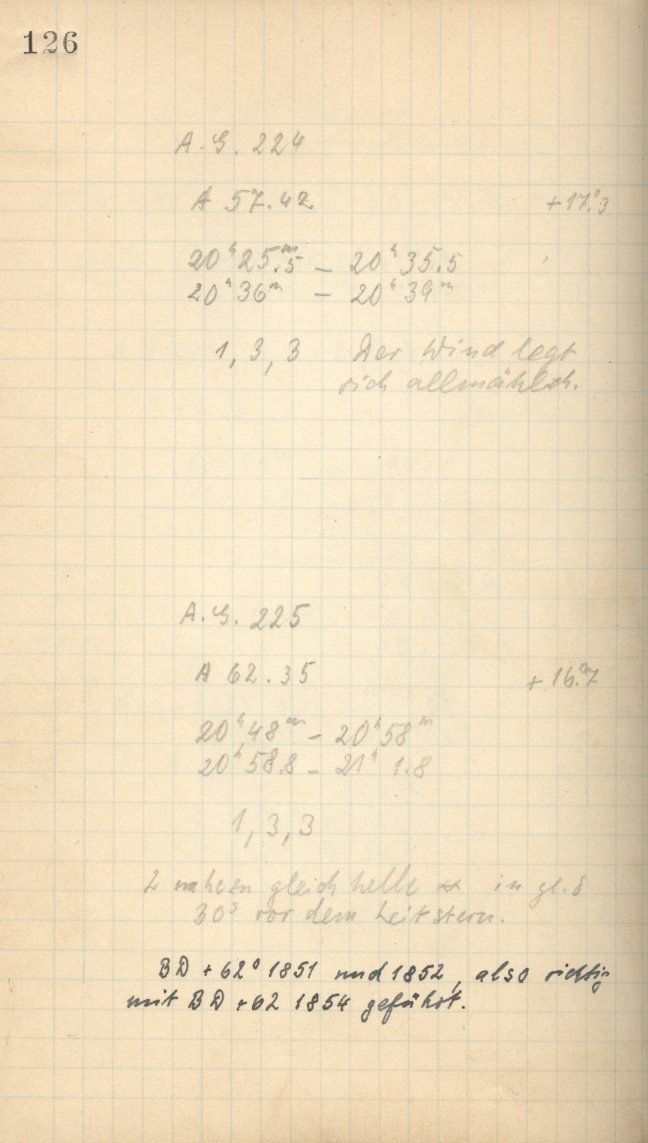 126
A. G. 224
A 57.42 +17°.3
20ʰ25ᵐ.5 – 20ʰ35.5
20ʰ36ᵐ – 20ʰ39ᵐ
1, 3, 3 Der Wind legt
sich allmählich.
A. G. 225
A 62.35 +16°.7
20ʰ48ᵐ – 20ʰ58ᵐ
20ʰ58.8 – 21ʰ 1.8
1, 3, 3
2 nahezu gleich helle ** in gl. δ
30ˢ vor dem Leitstern.
BD +62° 1851 und 1852, also richtig
mit BD +62 1854 geführt.